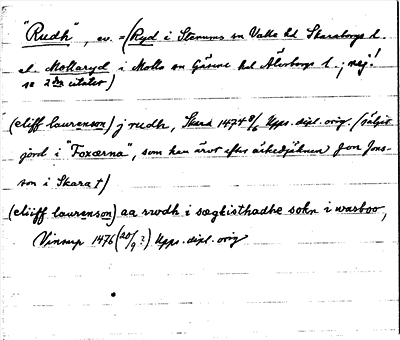 "Rudh", ev. = (Ryd i Stenums sn Valle hd Skaraborgs l.
el. Mollaryd i Molla sn Gäsene hd Älvsborgs l.; nej!
se 2 citatet)
(cliff laurenson) j rudh, Skara 1474 8/6 Upps. dipl. orig. (säljer
jord i "Foxærna", som han ärvt efter ärkedjäknen Jon Jons-
son i Skara †)
(cliiff laurenson) aa rwdh i sægkisthadhe sokn i wasboo,
Vinsarp 1476 (20/9?) Upps. dipl. orig